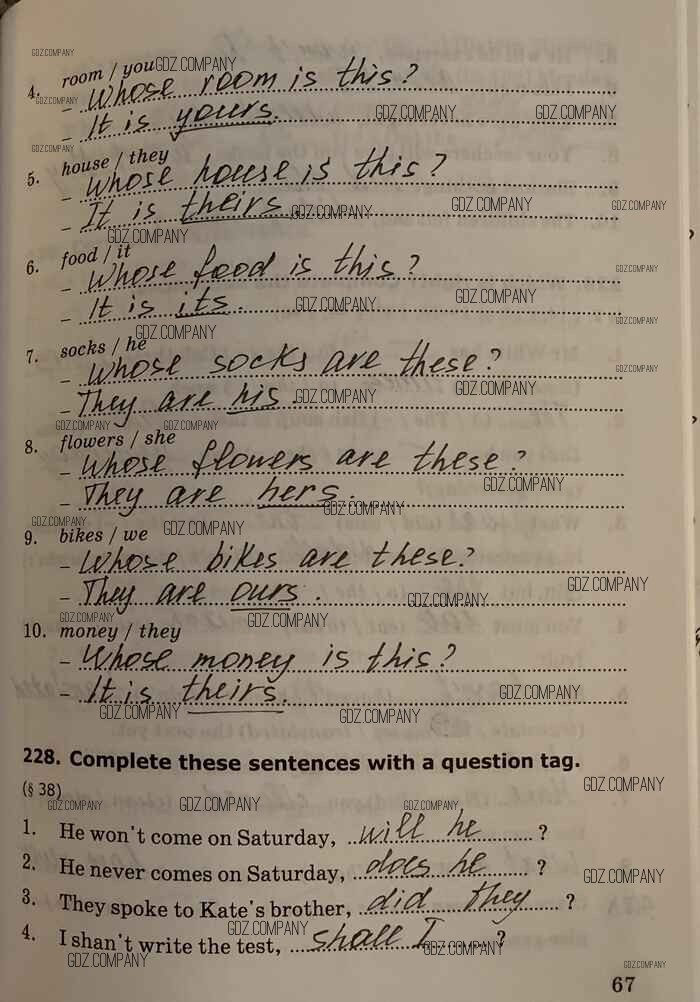 GDZ.COMPANY
4. room / you GDZ.COMPANY
GDZ.COMPANY
– Whose room is this?
– It is yours. GDZ.COMPANY GDZ.COMPANY
GDZ.COMPANY
5. house / they
– Whose house is this?
– It is theirs. GDZ.COMPANY GDZ.COMPANY GDZ.COMPANY
GDZ.COMPANY
6. food / it
– Whose food is this? GDZ.COMPANY
– It is its. GDZ.COMPANY GDZ.COMPANY
GDZ.COMPANY GDZ.COMPANY
7. socks / he
– Whose socks are these? GDZ.COMPANY
– They are his. GDZ.COMPANY GDZ.COMPANY
GDZ.COMPANY GDZ.COMPANY
8. flowers / she
– Whose flowers are these?
– They are hers. GDZ.COMPANY GDZ.COMPANY
GDZ.COMPANY GDZ.COMPANY
9. bikes / we
– Whose bikes are these?
– They are ours. GDZ.COMPANY GDZ.COMPANY
GDZ.COMPANY GDZ.COMPANY
10. money / they
– Whose money is this?
– It is theirs. GDZ.COMPANY
GDZ.COMPANY GDZ.COMPANY
228. Complete these sentences with a question tag.
(§ 38) GDZ.COMPANY
GDZ.COMPANY GDZ.COMPANY GDZ.COMPANY
1. He won't come on Saturday, will he ?
2. He never comes on Saturday, does he ? GDZ.COMPANY
3. They spoke to Kate's brother, did they ?
GDZ.COMPANY
4. I shan't write the test, shall I ?
GDZ.COMPANY GDZ.COMPANY GDZ.COMPANY
67